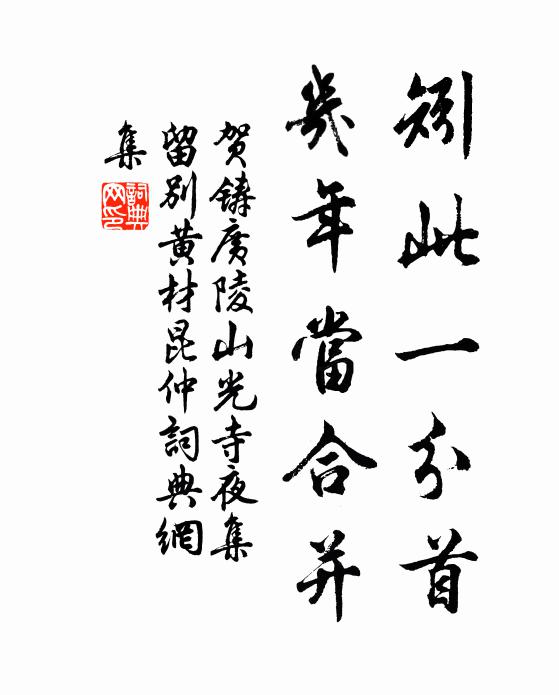 矧此一分首
幾年當合并
賀鑄廣陵山光寺夜集
留別黃材昆仲詞典網
集
詞典
网印